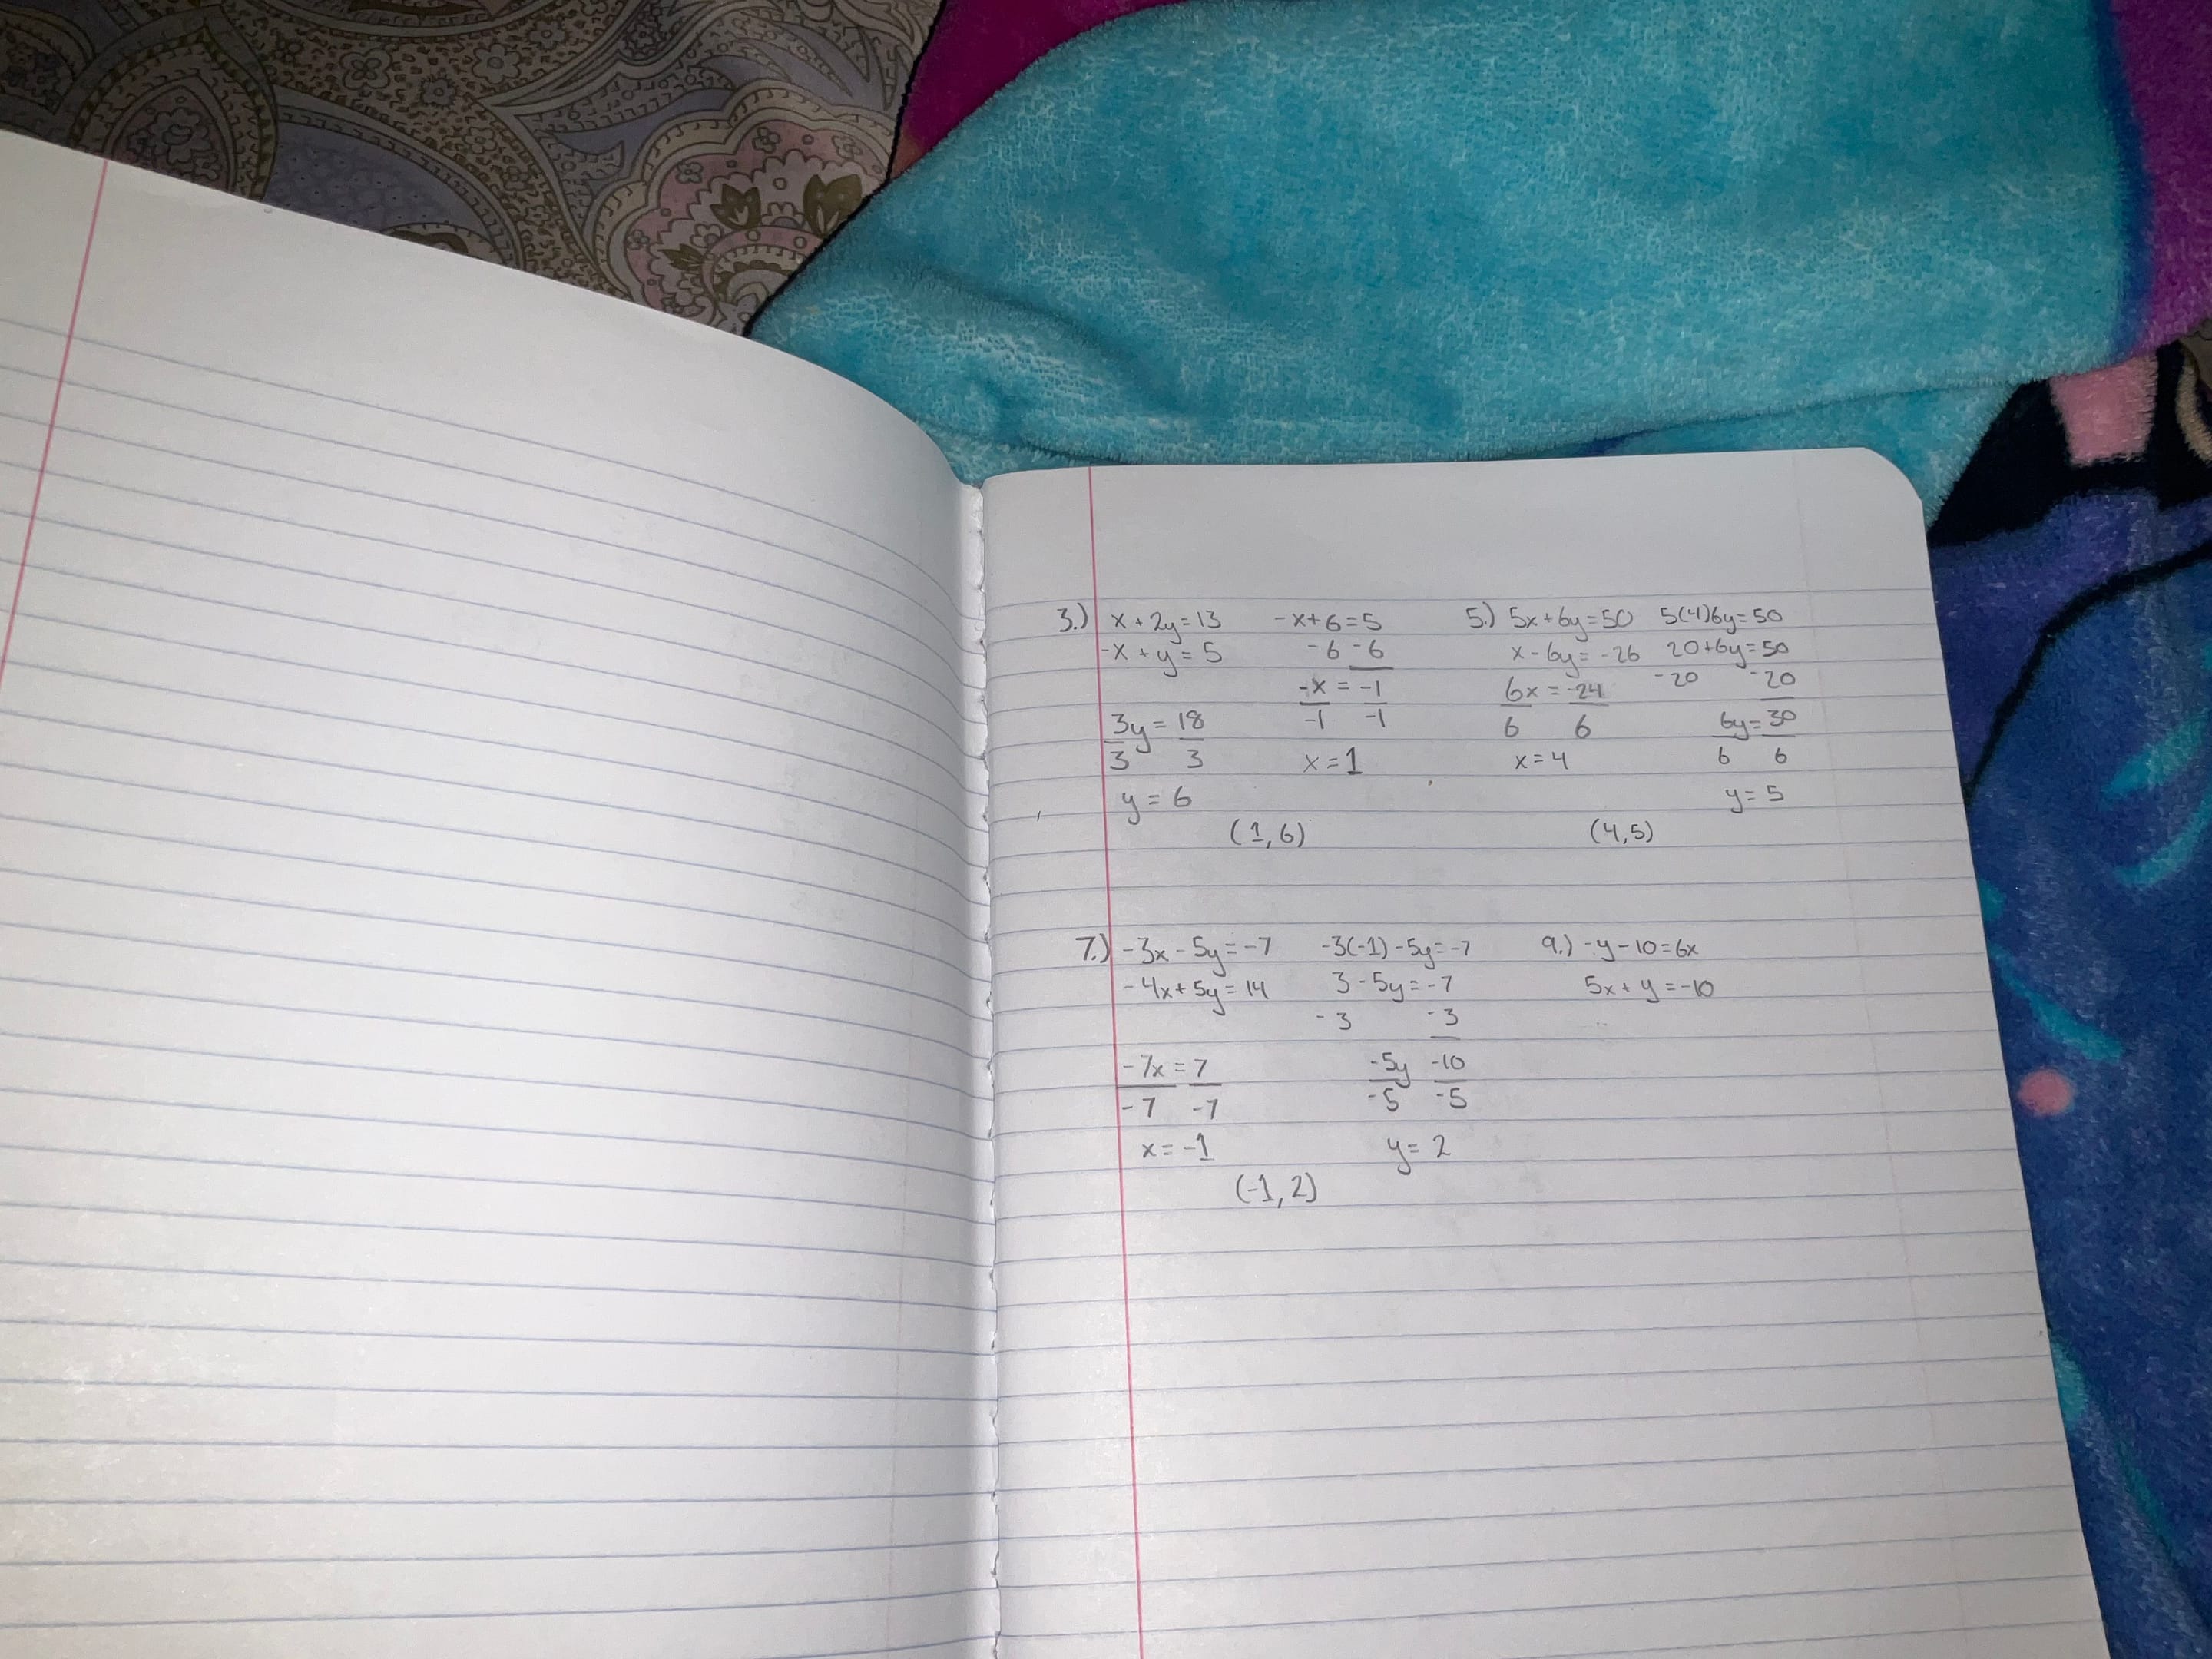 3.) x + 2y = 13
-x + y = 5
3y = 18
3 3
y = 6
-x + 6 = 5
-6 -6
-x = -1
-1 -1
x = 1
(1, 6)
5.) 5x + 6y = 50
x - 6y = -26
6x = -24
6 6
x = 4
5(4)6y = 50
20 + 6y = 50
-20 -20
6y = 30
6 6
y = 5
(4, 5)
7.) -3x - 5y = -7
-4x + 5y = 14
-7x = 7
-7 -7
x = -1
-3(-1) - 5y = -7
3 - 5y = -7
-3 -3
-5y -10
-5 -5
y = 2
(-1, 2)
9.) -y - 10 = 6x
5x + y = -10